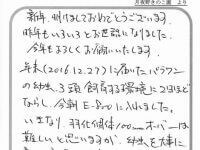 月夜野きのこ園 より
新年、明けましておめでとうございます。
昨年もいろいろとお世話になりました。
今年もよろしくお願いいたします。
年末(2016.12.27)に届いたパラワン
の幼虫3頭飼育する環境に2日ほど
ならし、今朝E-プロに入れました。
いきなり羽化個体100mmオーバーは
難しいと思いますが、幼虫を大事に